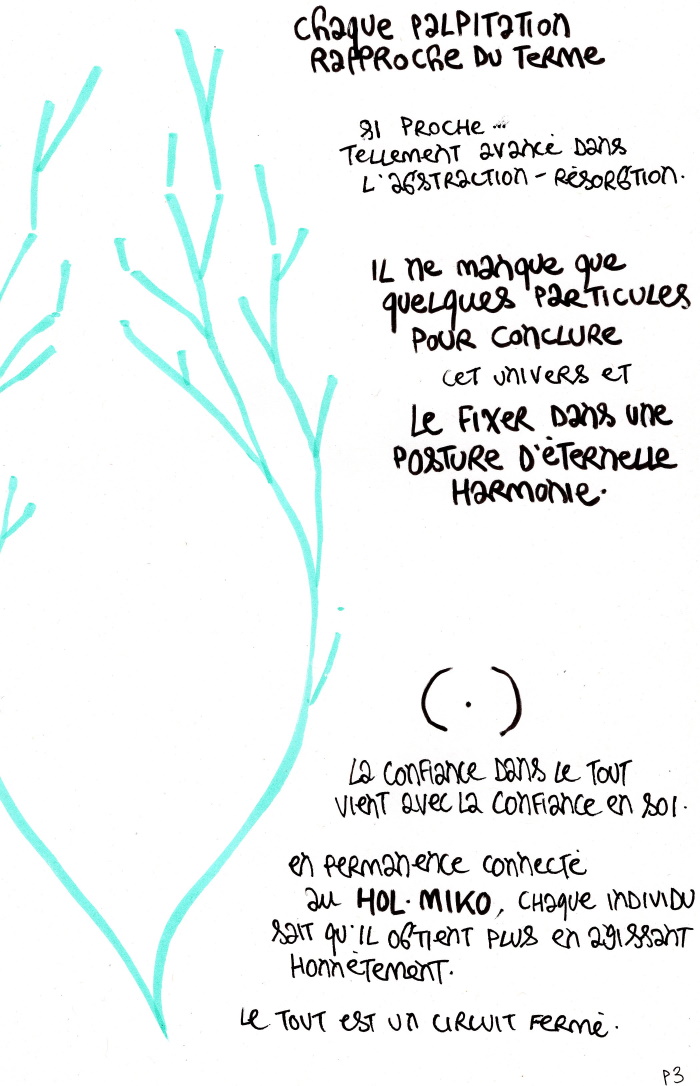 Chaque PALPITATION
RAPPROCHE DU TERME
SI PROCHE ...
TELLEMENT avancé DANS
L'ABSTRACTION - RÉSORBTION.
IL ne manque que
quelques PARTICULES
POUR CONCLURE
CET UNIVERS ET
Le FIXER DANS UNE
POSTURE D'ÉTERNELLE
HARMONIE.
( . )
La CONFIANCE DANS Le TOUT
VIENT avec La CONFIANCE en SOI.
en PERMANENCE CONNECTÉ
au HOL.MIKO, CHaque INDIVIDU
SAIT QU'IL OBTIENT PLUS en AGISSANT
HONNÈTEMENT.
Le TOUT EST UN CIRCUIT FERMÉ.
P3